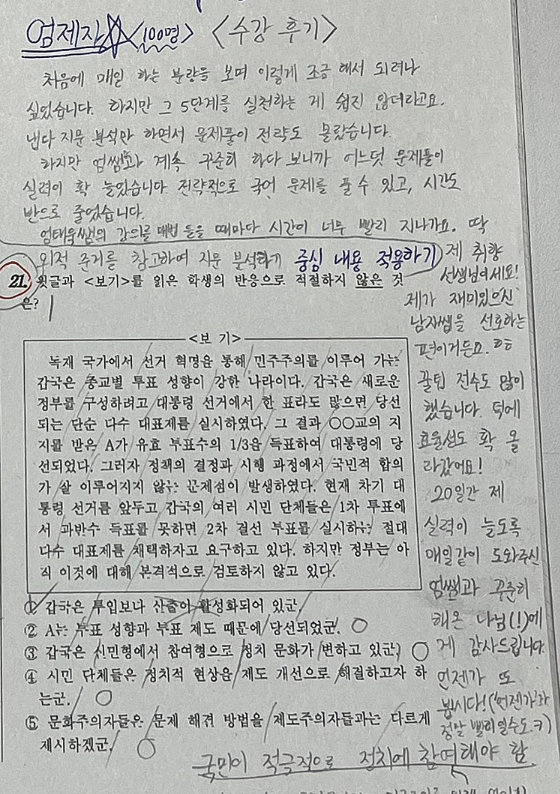 엄제자☆ <100명> <수강 후기>
처음에 매일 하는 분량을 보며 이렇게 조금 해서 되려나
싶었습니다. 하지만 그 5단계를 실천하는 게 쉽진 않더라고요.
냅다 지문 분석만 하면서 문제풀이 전략도 몰랐습니다.
하지만 엄쌤과 계속 꾸준히 하다 보니까 어느덧 문제풀이
실력이 확 늘었습니다 전략적으로 국어 문제를 풀 수 있고, 시간도
반으로 줄었습니다.
엄태욱쌤의 강의를 매번 들을 때마다 시간이 너무 빨리 지나가요. 딱
외적 준거를 참고하여 지문 분석하기 중심 내용 적용하기
제 취향
선생님이세요!
제가 재미있으신
남자쌤을 선호하는
편이거든요. ㅎㅎ
꿀팁 전수도 많이
했습니다. 덕에
효율성도 확 올
라갔어요!
20일간 제
실력이 늘도록
매일같이 도와주신
엄쌤과 꾸준히
해온 나님(!)에
게 감사드립니다.
언젠가 또
봅시다! ('언젠가'가
정말 빨리일수도.ㅋ)
21. 윗글과 <보기>를 읽은 학생의 반응으로 적절하지 않은 것
은? 1
<보 기>
독재 국가에서 선거 혁명을 통해 민주주의를 이루어 가는
갑국은 종교별 투표 성향이 강한 나라이다. 갑국은 새로운
정부를 구성하려고 대통령 선거에서 한 표라도 많으면 당선
되는 단순 다수 대표제를 실시하였다. 그 결과 ○○교의 지
지를 받은 A가 유효 투표수의 1/3을 득표하여 대통령에 당
선되었다. 그러자 정책의 결정과 시행 과정에서 국민적 합의
가 잘 이루어지지 않는 문제점이 발생하였다. 현재 차기 대
통령 선거를 앞두고 갑국의 여러 시민 단체들은 1차 투표에
서 과반수 득표를 못하면 2차 결선 투표를 실시하는 절대
다수 대표제를 채택하자고 요구하고 있다. 하지만 정부는 아
직 이것에 대해 본격적으로 검토하지 않고 있다.
① 갑국은 투입보다 산출이 활성화되어 있군.
② A는 투표 성향과 투표 제도 때문에 당선되었군. ○
③ 갑국은 신민형에서 참여형으로 정치 문화가 변하고 있군. ○
④ 시민 단체들은 정치적 현상을 제도 개선으로 해결하고자 하
는군. ○
⑤ 문화주의자들은 문제 해결 방법을 제도주의자들과는 다르게
제시하겠군. ○
국민이 적극적으로 정치에 참여해야 함.